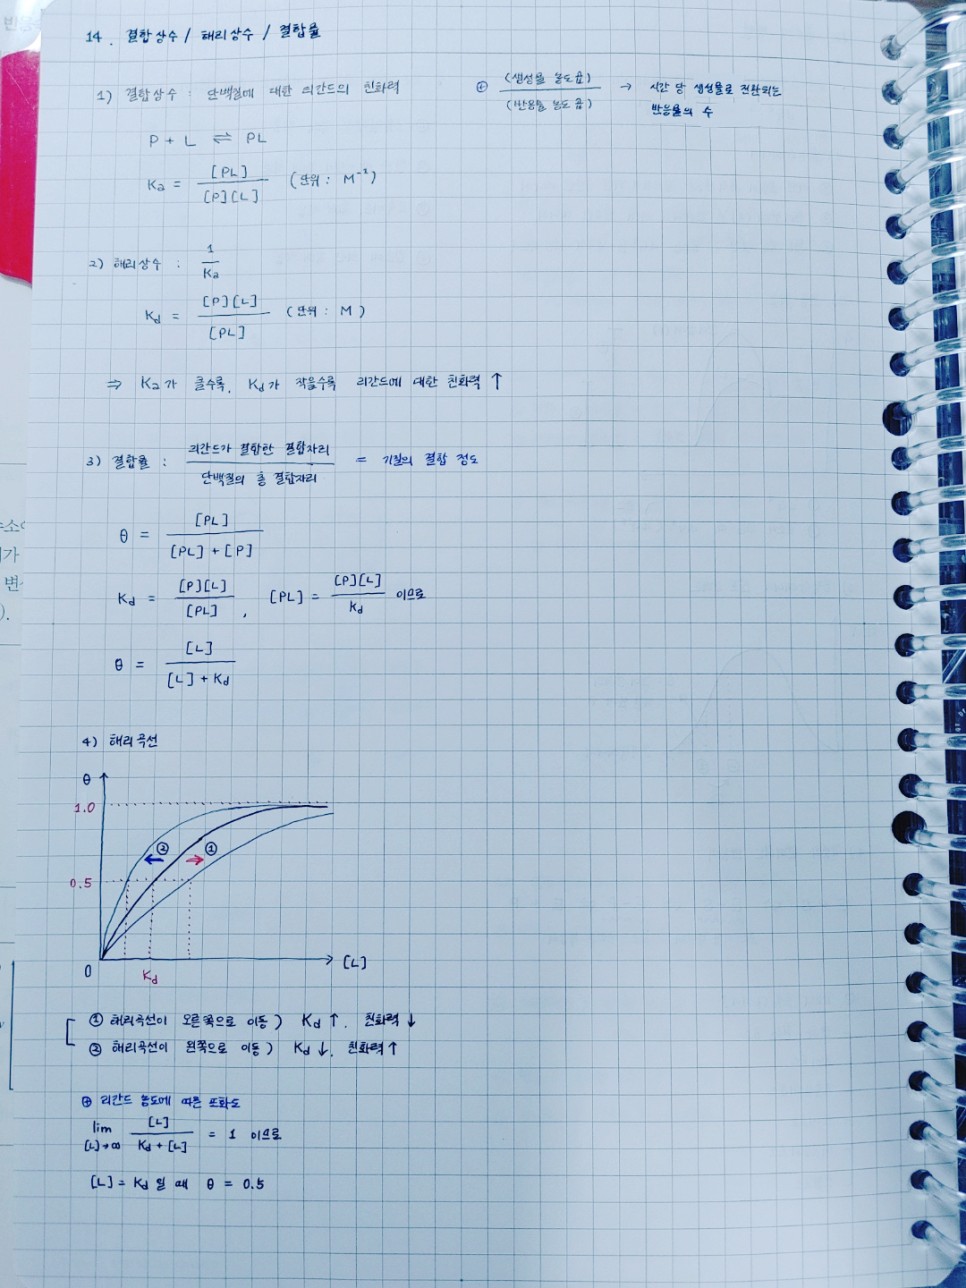 14. 결합상수 / 해리상수 / 결합률
1) 결합상수 : 단백질에 대한 리간드의 친화력
P + L ⇌ PL
Ka = [PL] / [P][L] (단위 : M⁻¹)
⊕ (생성물 농도곱) / (반응물 농도곱) → 시간 당 생성물로 전환되는
반응물의 수
2) 해리상수 : 1 / Ka
Kd = [P][L] / [PL] (단위 : M)
⇒ Ka가 클수록, Kd가 작을수록 리간드에 대한 친화력 ↑
3) 결합률 : 리간드가 결합한 결합자리 / 단백질의 총 결합자리 = 기질의 결합 정도
θ = [PL] / [PL] + [P]
Kd = [P][L] / [PL] , [PL] = [P][L] / Kd 이므로
θ = [L] / [L] + Kd
4) 해리곡선
θ
1.0
② ①
0.5
0
Kd
[L]
① 해리곡선이 오른쪽으로 이동) Kd ↑, 친화력 ↓
② 해리곡선이 왼쪽으로 이동) Kd ↓, 친화력 ↑
⊕ 리간드 농도에 따른 포화도
lim [L]→∞ [L] / Kd + [L] = 1 이므로
[L] = Kd 일 때 θ = 0.5
변
).